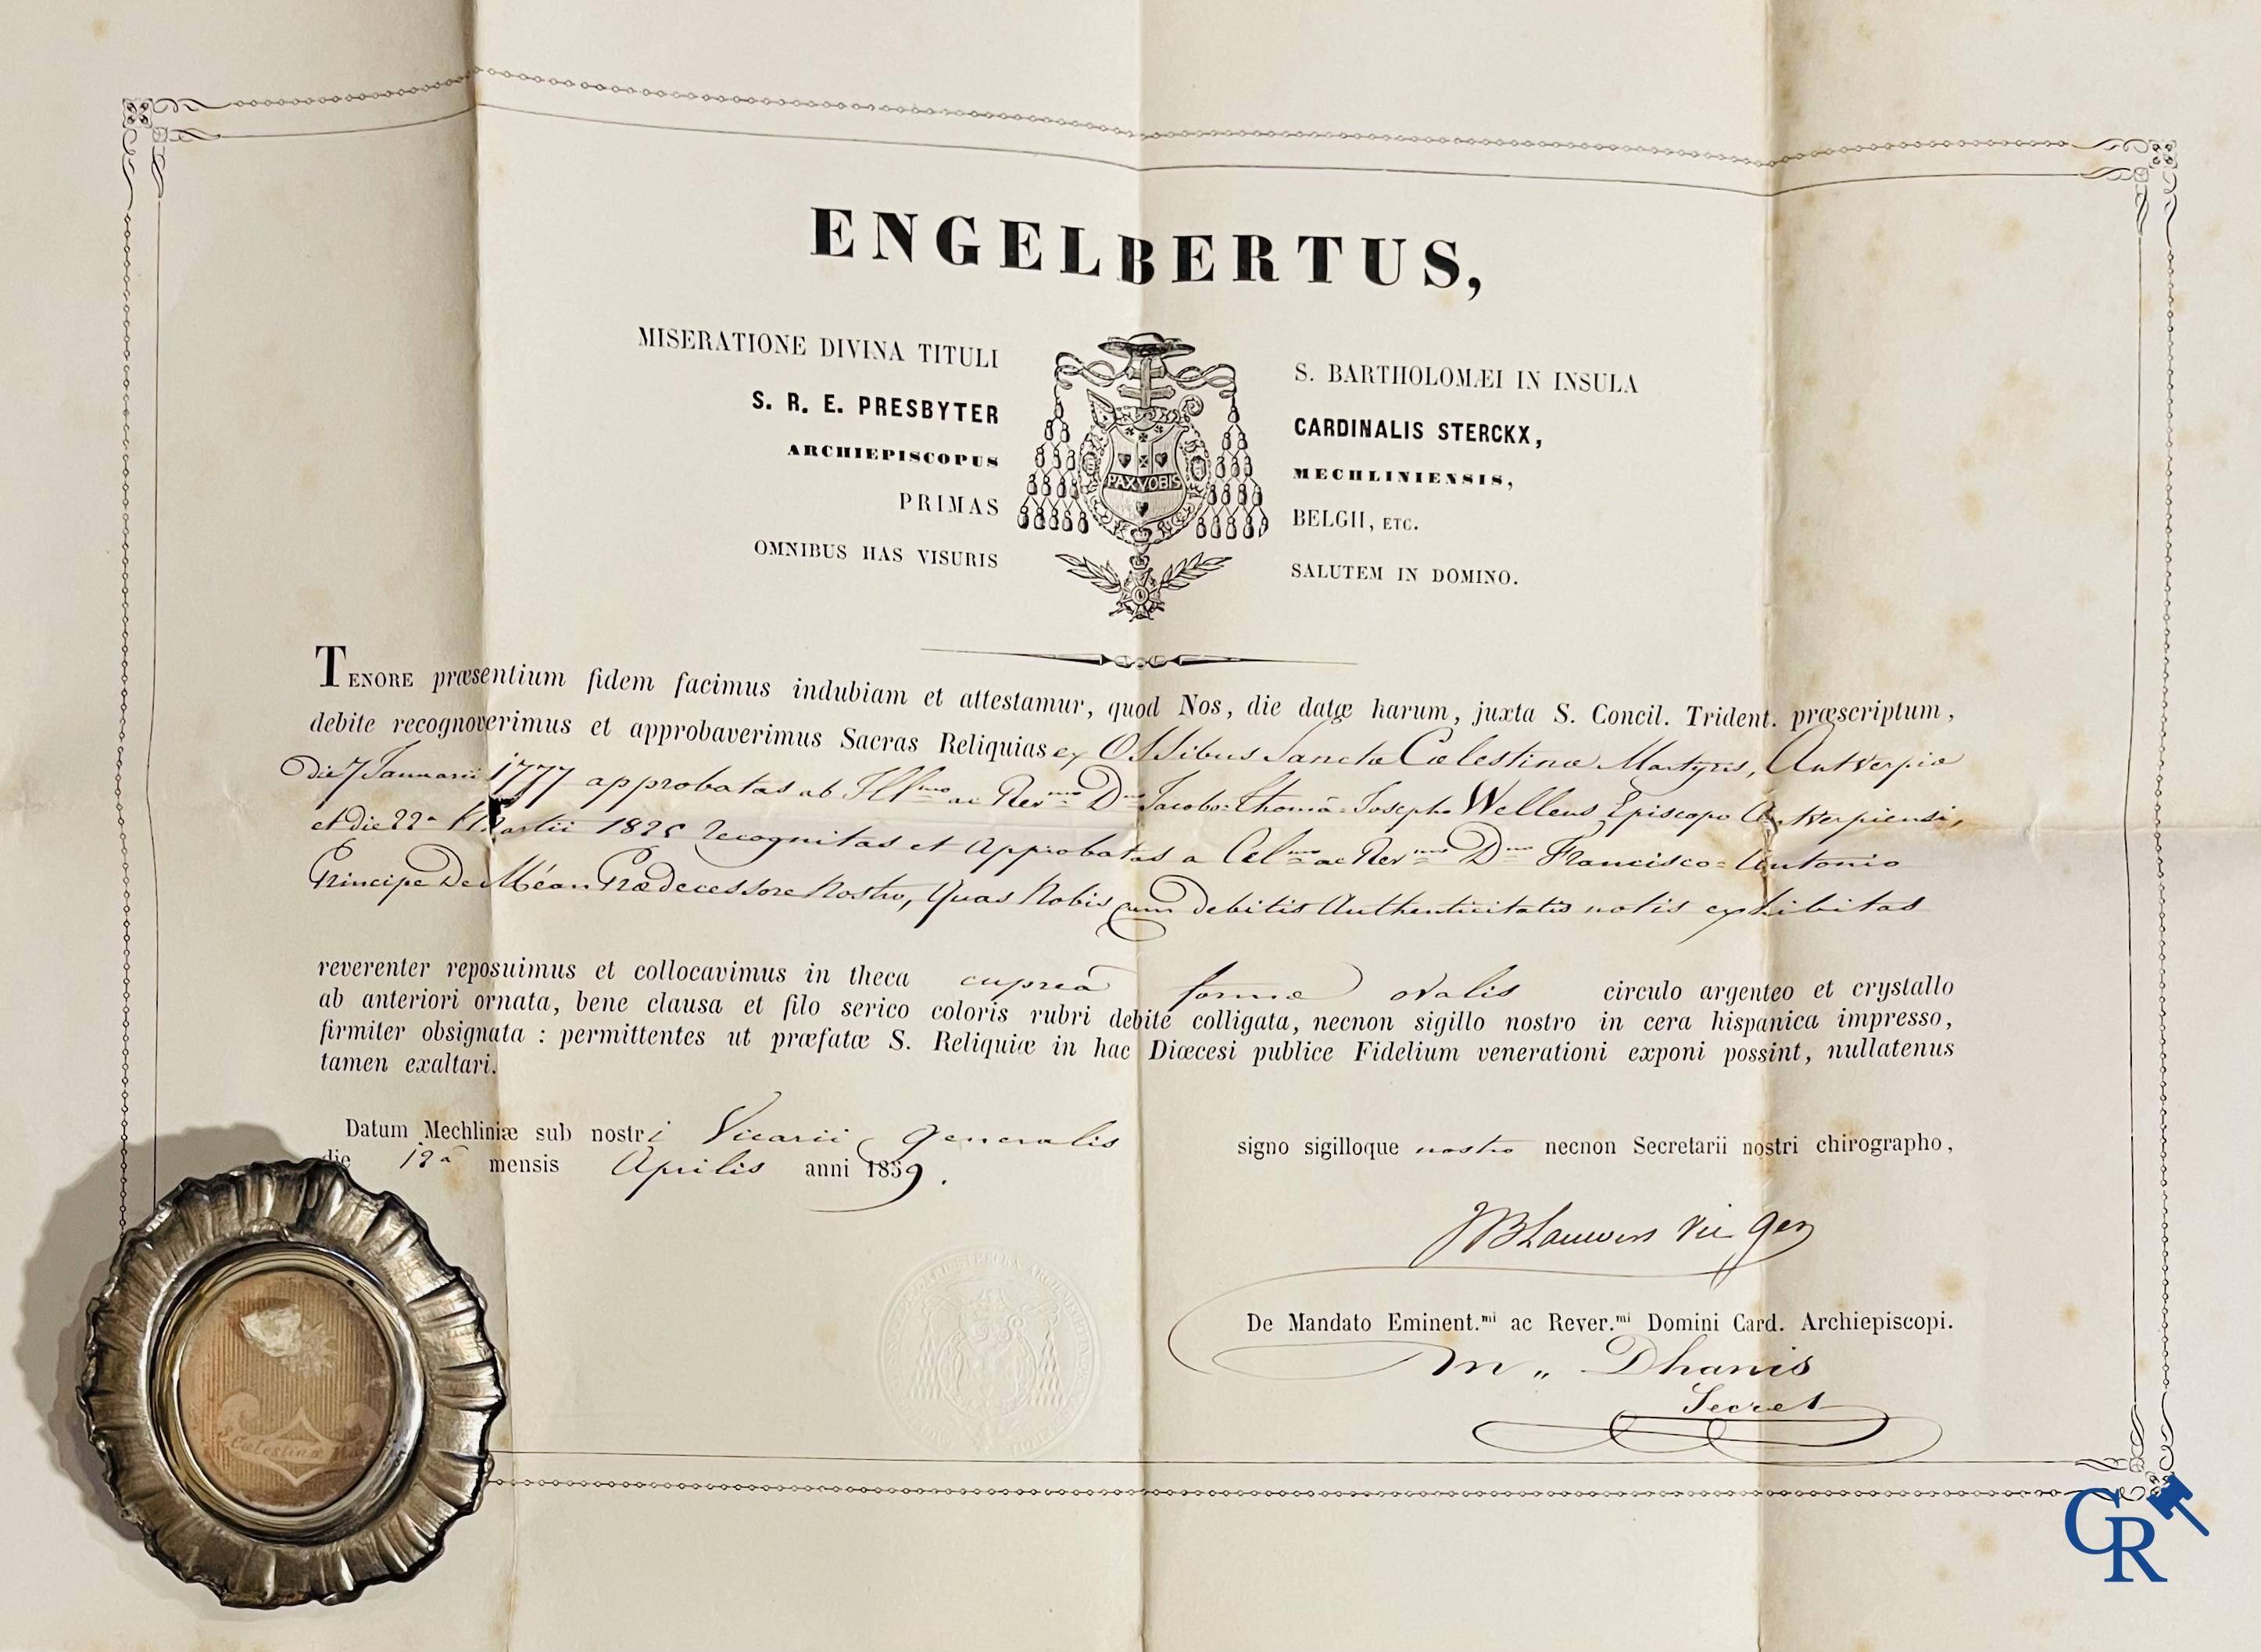 ENGELBERTUS,
MISERATIONE DIVINA TITULI S. BARTHOLOMÆI IN INSULA
S. R. E. PRESBYTER CARDINALIS STERCKX,
ARCHIEPISCOPUS MECHLINIENSIS,
PRIMAS BELGII, ETC.
PAX VOBIS
OMNIBUS HAS VISURIS SALUTEM IN DOMINO.
TENORE præsentium fidem facimus indubiam et attestamur, quod Nos, die datæ harum, juxta S. Concil. Trident. præscriptum,
debite recognoverimus et approbaverimus Sacras Reliquias ex Ossibus Sanctæ Cælestinæ Martyris, Antverpiæ
die 7 Januarii 1777 approbatas ab Illmo ac Revmo Dno Jacobo-Thomâ-Josepho Wellens Episcopo Antverpiensi,
et die 22a Martii 1825 recognitas et approbatas a Celmo ac Revmo Dno Francisco-Antonio
Principe De Méan Prædecessore Nostro, quas Nobis cum debitis authenticitatis notis exhibitas
reverenter reposuimus et collocavimus in theca cupreâ formæ ovalis circulo argenteo et crystallo
ab anteriori ornata, bene clausa et filo serico coloris rubri debite colligata, necnon sigillo nostro in cera hispanica impresso,
firmiter obsignata : permittentes ut præfatæ S. Reliquiæ in hac Diœcesi publice Fidelium venerationi exponi possint, nullatenus
tamen exaltari.
Datum Mechliniæ sub nostri Vicarii generalis signo sigilloque nostro necnon Secretarii nostri chirographo,
die 12a mensis Aprilis anni 1859.
JB Lauwers Vic gen
De Mandato Eminent.mi ac Rever.mi Domini Card. Archiepiscopi.
m,, Dhanis
Secret
S Cælestinæ
CR